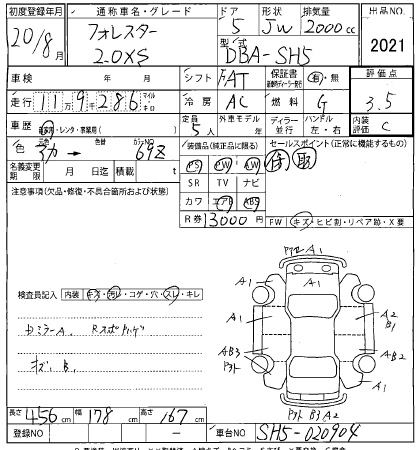 初度登録年月 通称車名・グレード ドア 形状 排気量 出品NO.
20/8月 フォレスター 5 JW 2000cc
2.0XS 型式 DBA-SH5 2021
車検 年 月 シフト FAT 保証書 有・無 評価点
走行 11万9286 マイル キロ 冷房 AC 燃料 G 3.5
車歴 自家用・レンタ・事業用( ) 定員 5人 外車モデル 年 ディーラー 並行 ハンドル 左・右 内装評価 C
色 色替 カラーNO 69Z 装備品(純正品に限る) セールスポイント(正常に機能するもの)
名義変更期限 月 日迄 積載 t PS PW AW
注意事項(欠品・修復・不具合箇所および状態) SR TV ナビ 取
カワ エアB ABS
R券 13000円 FW キズ・ヒビ割・リペア跡・X要
A1 A1
検査員記入 内装 キズ・汚レ・コゲ・穴・スレ・キレ A1 A1
ドミラーA. A1 A2 B1
キズ. B. AB3 AB2
A1
B3A2
長さ 456cm 幅 178cm 高さ 167cm
登録NO 車台NO SH5-020904